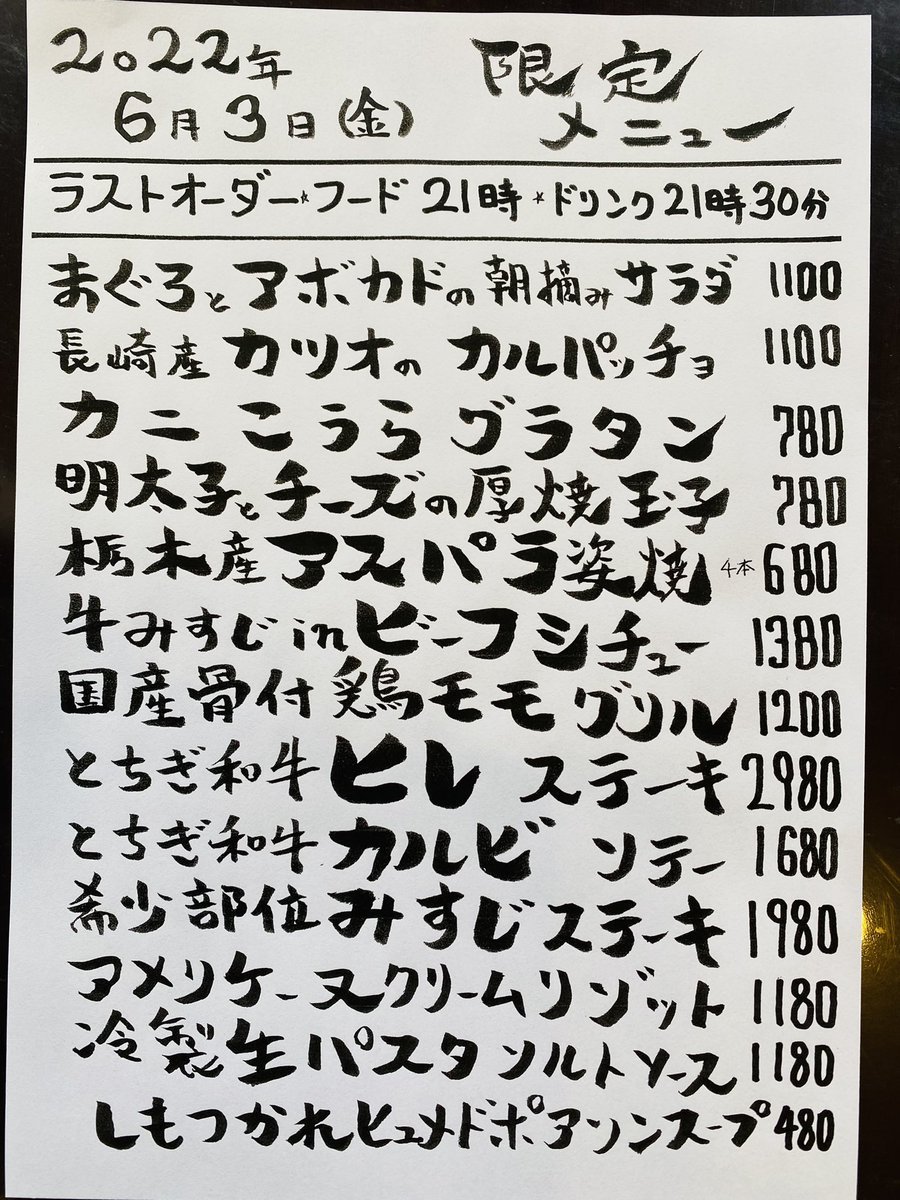 2022年
6月3日(金)
限定
メニュー
ラストオーダー☆フード 21時 ☆ドリンク21時30分
まぐろとアボカドの朝摘みサラダ 1100
長崎産 カツオの カルパッチョ 1100
カニ こうら グラタン 780
明太子とチーズの厚焼玉子 780
栃木産アスパラ姿焼 4本 680
牛みすじinビーフシチュー 1380
国産骨付鶏モモグリル 1200
とちぎ和牛ヒレ ステーキ 2980
とちぎ和牛カルビ ソテー 1680
希少部位みすじステーキ 1980
アメリケーヌクリームリゾット 1180
冷製生パスタソルトソース 1180
しもつかれヒュメドポアソンスープ 480